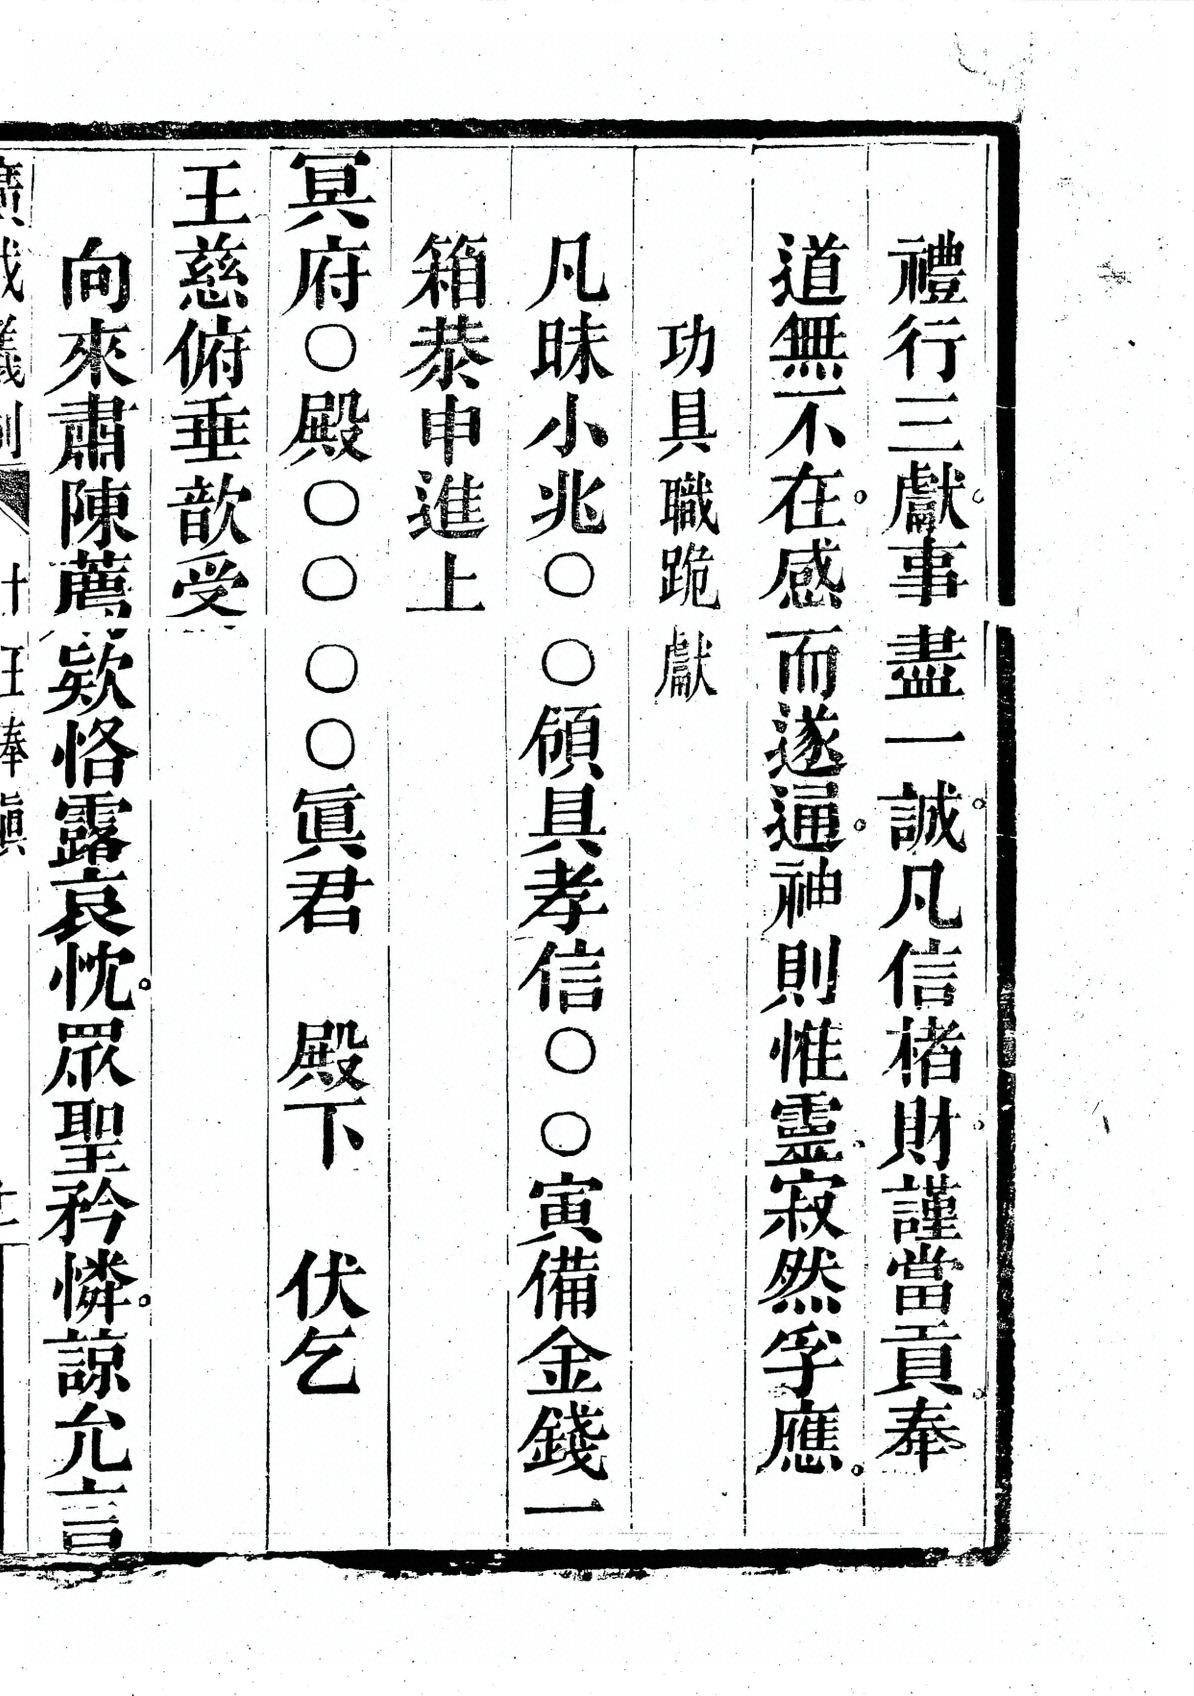 禮行三獻。事盡一誠。凡信楮財。謹當貢。奉
道無不在。感而遂通。神則惟靈。寂然孚應。
功具職跪獻
凡昧小兆○○領具孝信○○寅備金錢一
箱恭申進上
冥府○殿○○○○眞君 殿下 伏乞
王慈俯垂歆受
向來肅陳薦欵恪露哀忱。眾聖矜憐。諒允言
廣成儀制